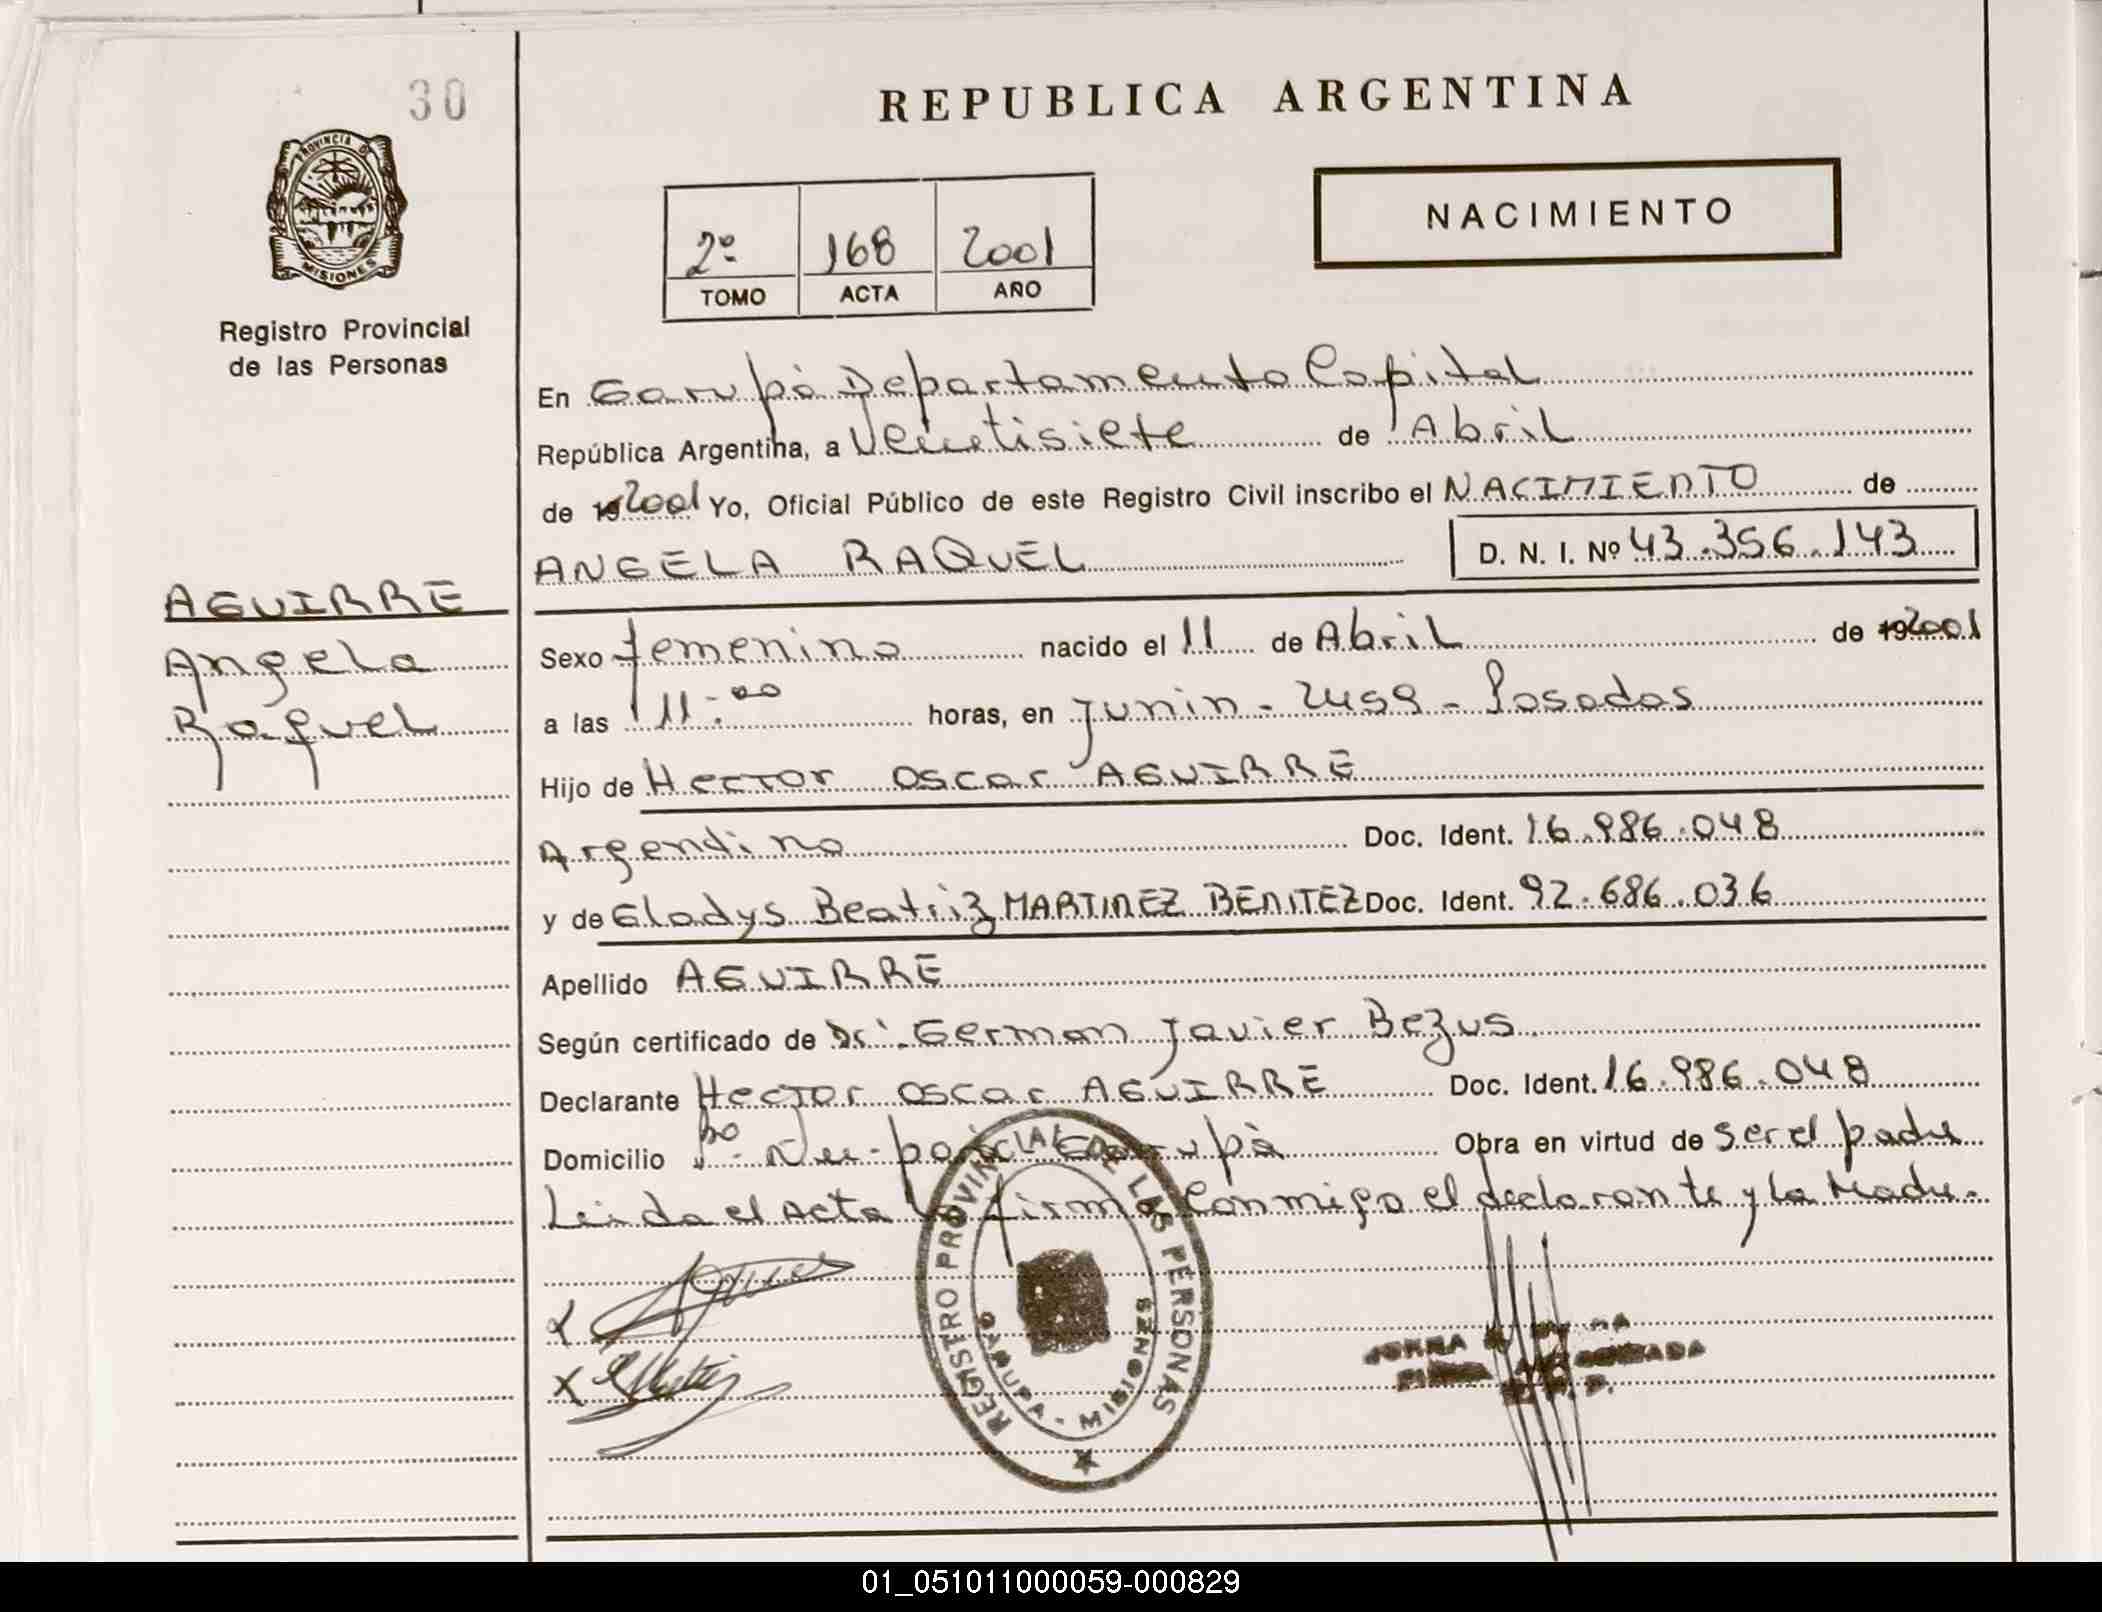 30
REPUBLICA ARGENTINA
PROVINCIA D
MISIONES
Registro Provincial
de las Personas
NACIMIENTO
2º 168 2001
TOMO ACTA AÑO
En Garupà Departamento Capital
República Argentina, a Veintisiete de Abril
de 2001 Yo, Oficial Público de este Registro Civil inscribo el NACIMIENTO de
ANGELA RAQUEL D. N. I. Nº 43.356.143
AGUIRRE
Angela
Raquel
Sexo femenino nacido el 11 de Abril de 2001
a las 11:00 horas, en Junin - 2459 - Posadas
Hijo de Hector Oscar AGUIRRE
Argentino Doc. Ident. 16.986.048
y de Gladys Beatriz MARTINEZ BENITEZ Doc. Ident. 92.686.036
Apellido AGUIRRE
Según certificado de Dr. German Javier Bezus
Declarante Hector Oscar AGUIRRE Doc. Ident. 16.986.048
Domicilio Garupà Obra en virtud de ser el padre
Leida el Acta la firma Conmigo el declarante y la Madre.
REGISTRO PROVINCIAL DE LAS PERSONAS
GARUPA - MISIONES
01_051011000059-000829